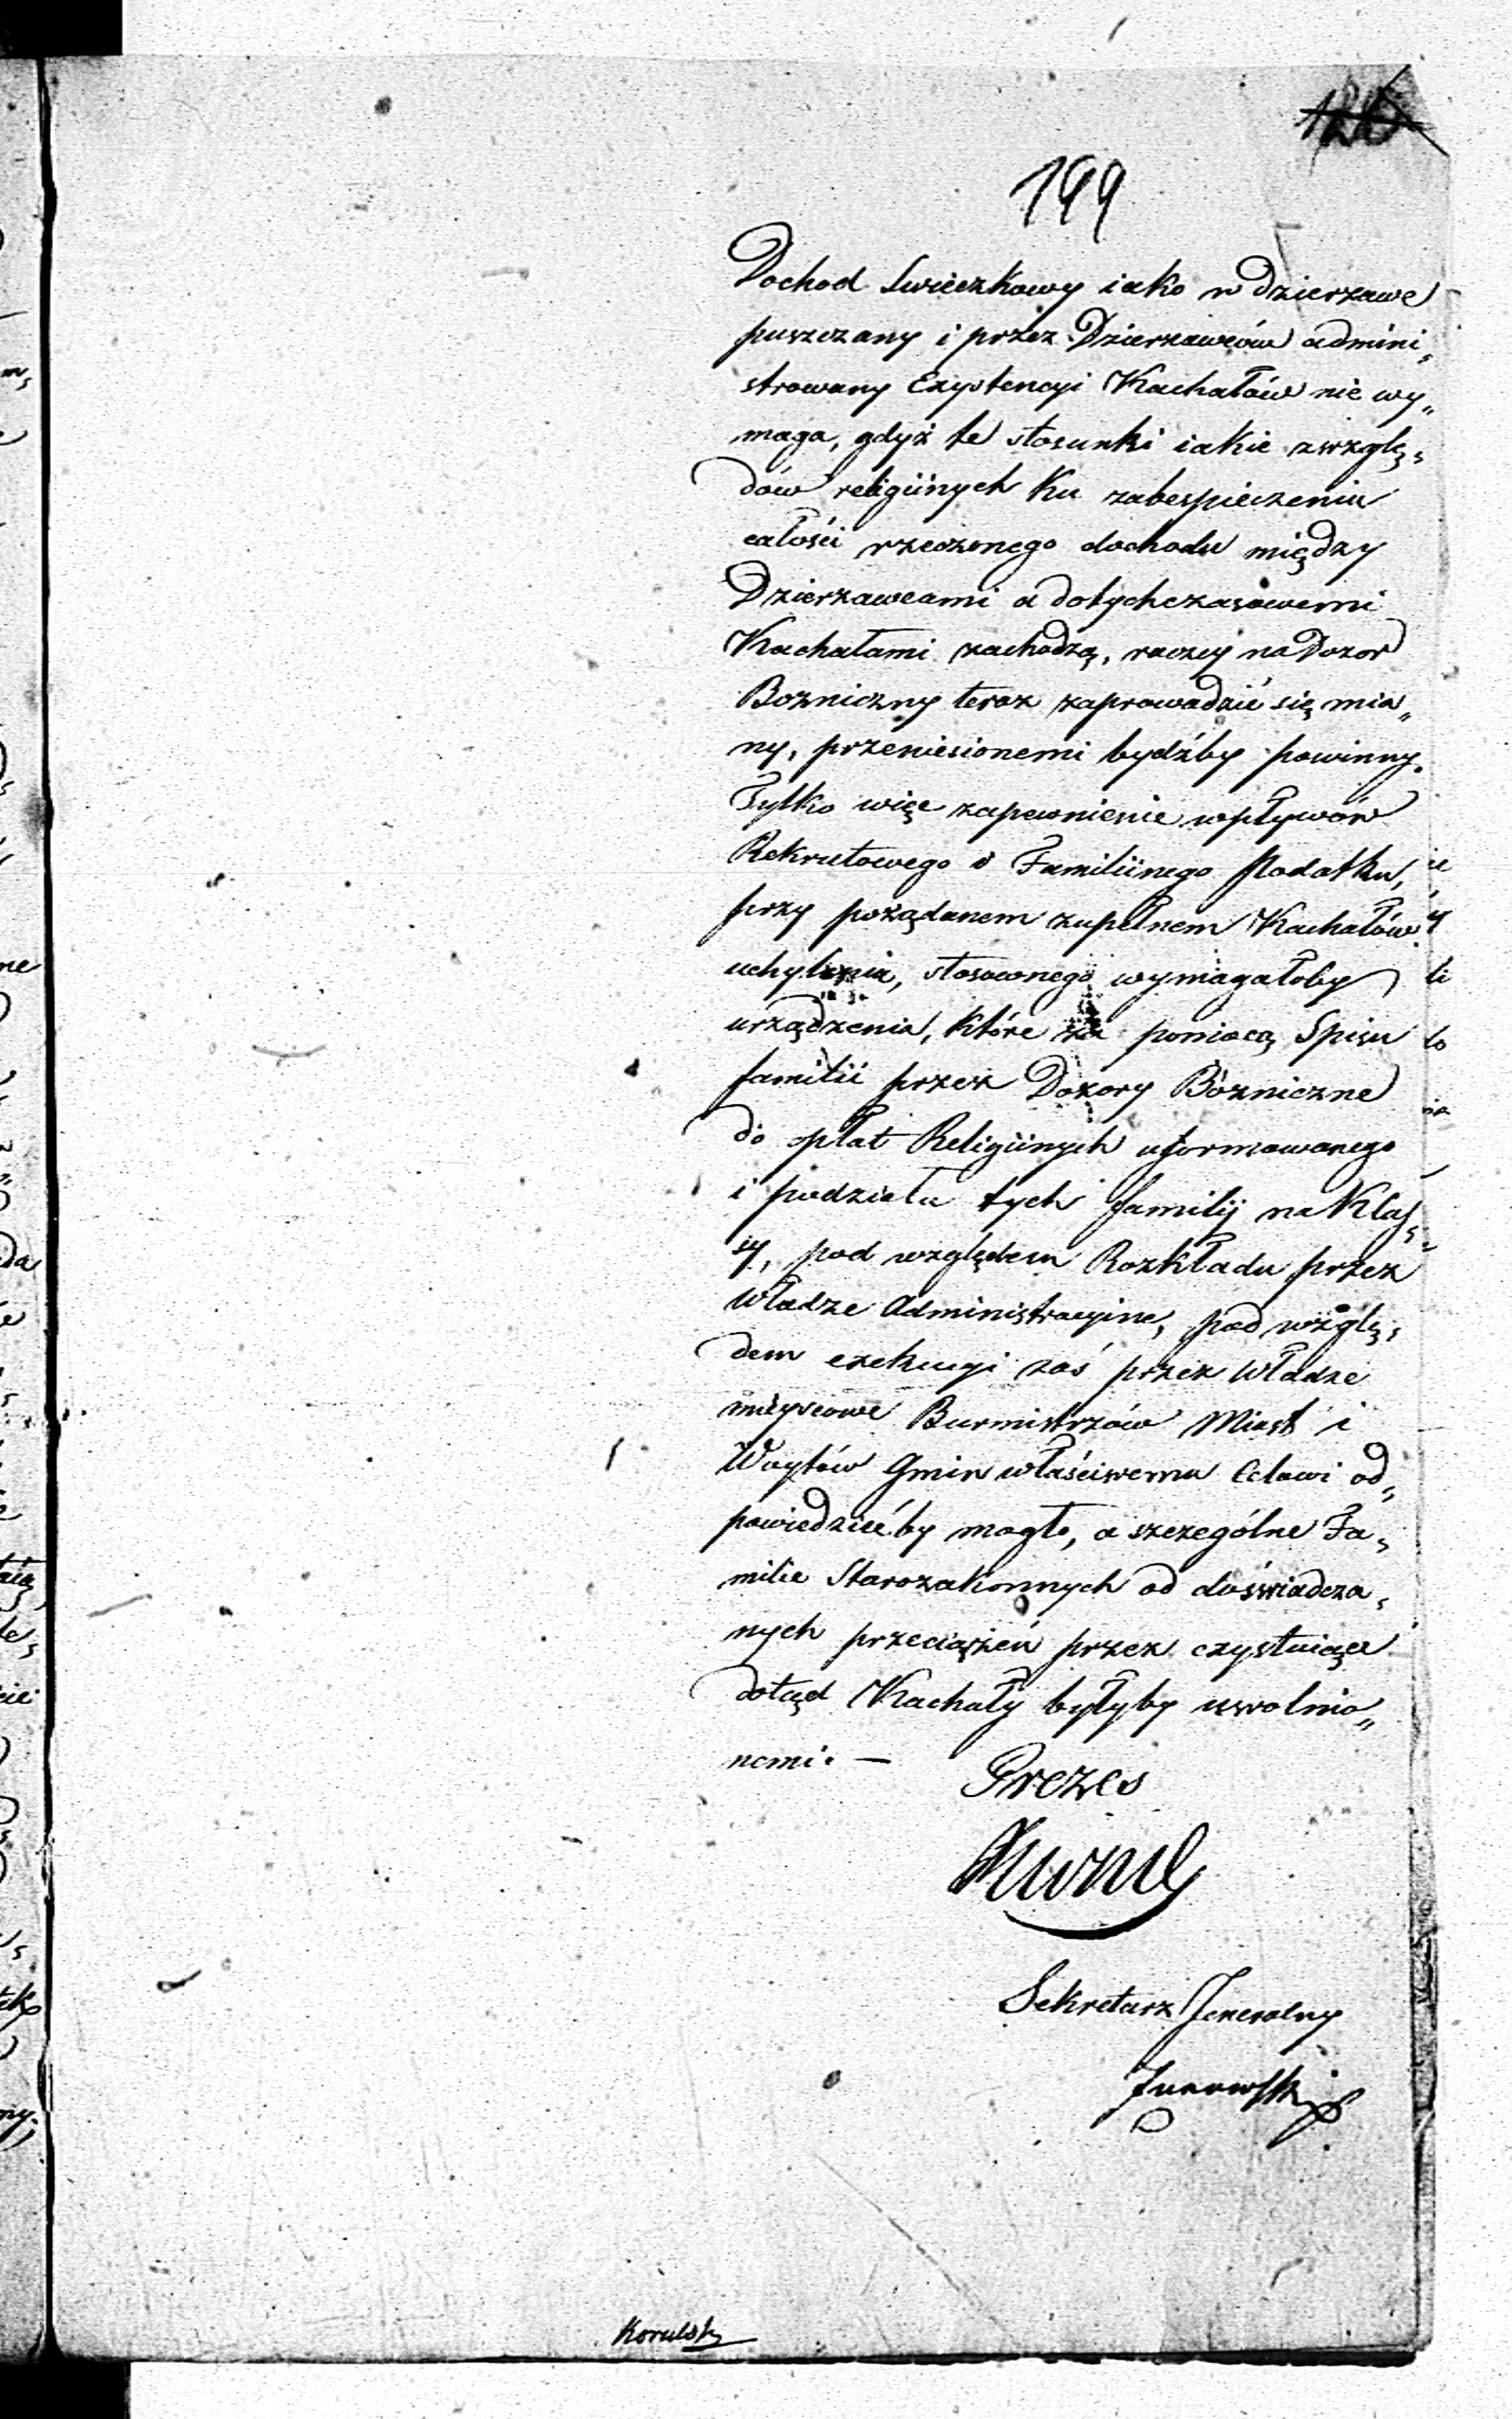 199
Dochod Swieczkowy iako w Dzierzawe
puszczany i przez Dzierzawców admini„
strowany Exystencyi Kachałów nie wy„
maga, gdyż te stosunki iakie z wzglę„
dów religiinych ku zabespieczeniu
całości rzeczonego dochodu między
Dzierzawcami a dotychczasowemi
Kachałami zachodzą, raczey na Dozor
Bozniczny teraz zaprowadzić się mia„
ny, przeniesionemi bydźby powinny.
Tylko więc zapewnienie wpływów
Rekrutowego i Familiinego Podatku,
przy pożądanem zupełnem Kachałów
uchyleniu, stosownego wymagałoby
urządzenia, które za pomocą Spisu
familii przez Dozory Bózniczne
do opłat Religiinych uformowanego
i podziału tych familij na Klas„
sy, pod względem Rozkładu przez
Władze Administracyine, pod wzglę„
dem exekucyi zaś przez Władze
mieyscowe Burmistrzów Miast i
Woytów Gmin właściwemu Celowi od„
powiedziećby mogło, a szczególne Fa„
milie Starozakonnych od doświadcza„
nych przeciążeń przez exystuiące
dotąd Kachały byłyby uwolnio„
nemi. —
Prezes
Sekretarz Jeneralny